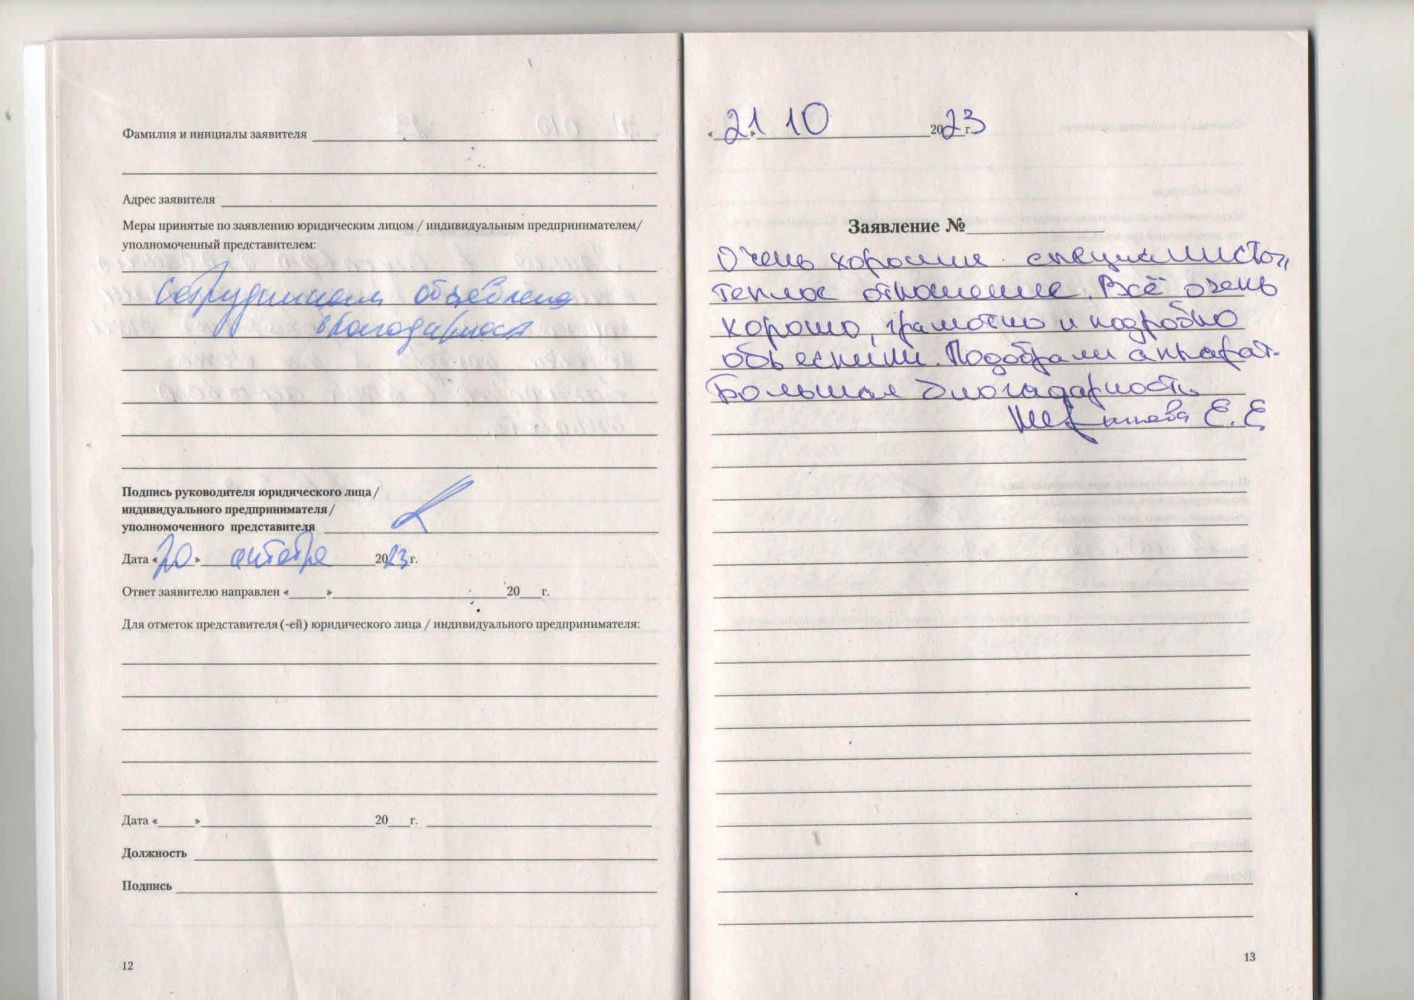 Фамилия и инициалы заявителя
Адрес заявителя
Меры принятые по заявлению юридическим лицом / индивидуальным предпринимателем/
уполномоченный представителем:
Сотрудникам объявлена
благодарность
Подпись руководителя юридического лица /
индивидуального предпринимателя/
уполномоченного представителя
Дата «20» октября 2023 г.
Ответ заявителю направлен «___»___20___г.
Для отметок представителя (-ей) юридического лица / индивидуального предпринимателя:
Дата «___»___20___г.
Должность
Подпись
12
«21» 10 2023 г.
Заявление №
Очень хорошие специалисты,
теплое отношение. Всё очень
хорошо, грамотно и подробно
объеснили. Подобрали аппарат.
Большая благодарность
Е. Е
13